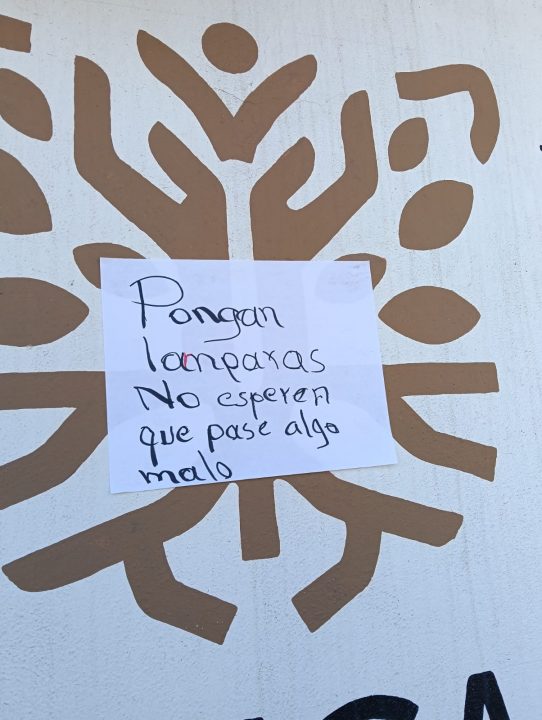 Pongan
lamparas
No esperen
que pase algo
malo